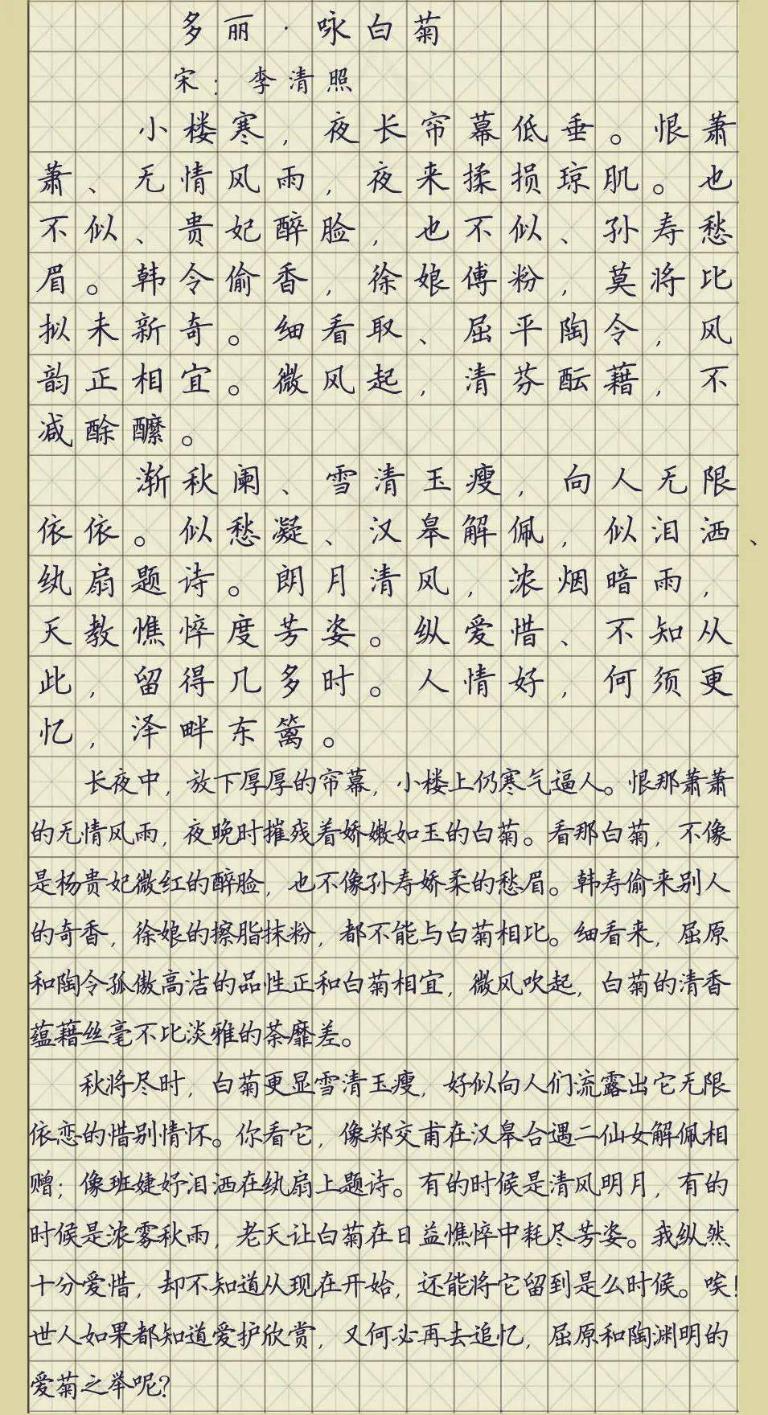 多丽·咏白菊
宋：李清照
小楼寒，夜长帘幕低垂。恨萧
萧、无情风雨，夜来揉损琼肌。也
不似、贵妃醉脸，也不似、孙寿愁
眉。韩令偷香，徐娘傅粉，莫将比
拟未新奇。细看取、屈平陶令，风
韵正相宜。微风起，清芬酝藉，不
减酴醾。
渐秋阑、雪清玉瘦，向人无限
依依。似愁凝、汉皋解佩，似泪洒、
纨扇题诗。朗月清风，浓烟暗雨，
天教憔悴度芳姿。纵爱惜、不知从
此，留得几多时。人情好，何须更
忆，泽畔东篱。
长夜中，放下厚厚的帘幕，小楼上仍寒气逼人。恨那萧萧
的无情风雨，夜晚时摧残着娇嫩如玉的白菊。看那白菊，不像
是杨贵妃微红的醉脸，也不像孙寿娇柔的愁眉。韩寿偷来别人
的奇香，徐娘的擦脂抹粉，都不能与白菊相比。细看来，屈原
和陶令孤傲高洁的品性正和白菊相宜，微风吹起，白菊的清香
蕴藉丝毫不比淡雅的荼靡差。
秋将尽时，白菊更显雪清玉瘦，好似向人们流露出它无限
依恋的惜别情怀。你看它，像郑交甫在汉皋台遇二仙女解佩相
赠；像班婕妤泪洒在纨扇上题诗。有的时候是清风明月，有的
时候是浓雾秋雨，老天让白菊在日益憔悴中耗尽芳姿。我纵然
十分爱惜，却不知道从现在开始，还能将它留到是么时候。唉！
世人如果都知道爱护欣赏，又何必再去追忆，屈原和陶渊明的
爱菊之举呢？